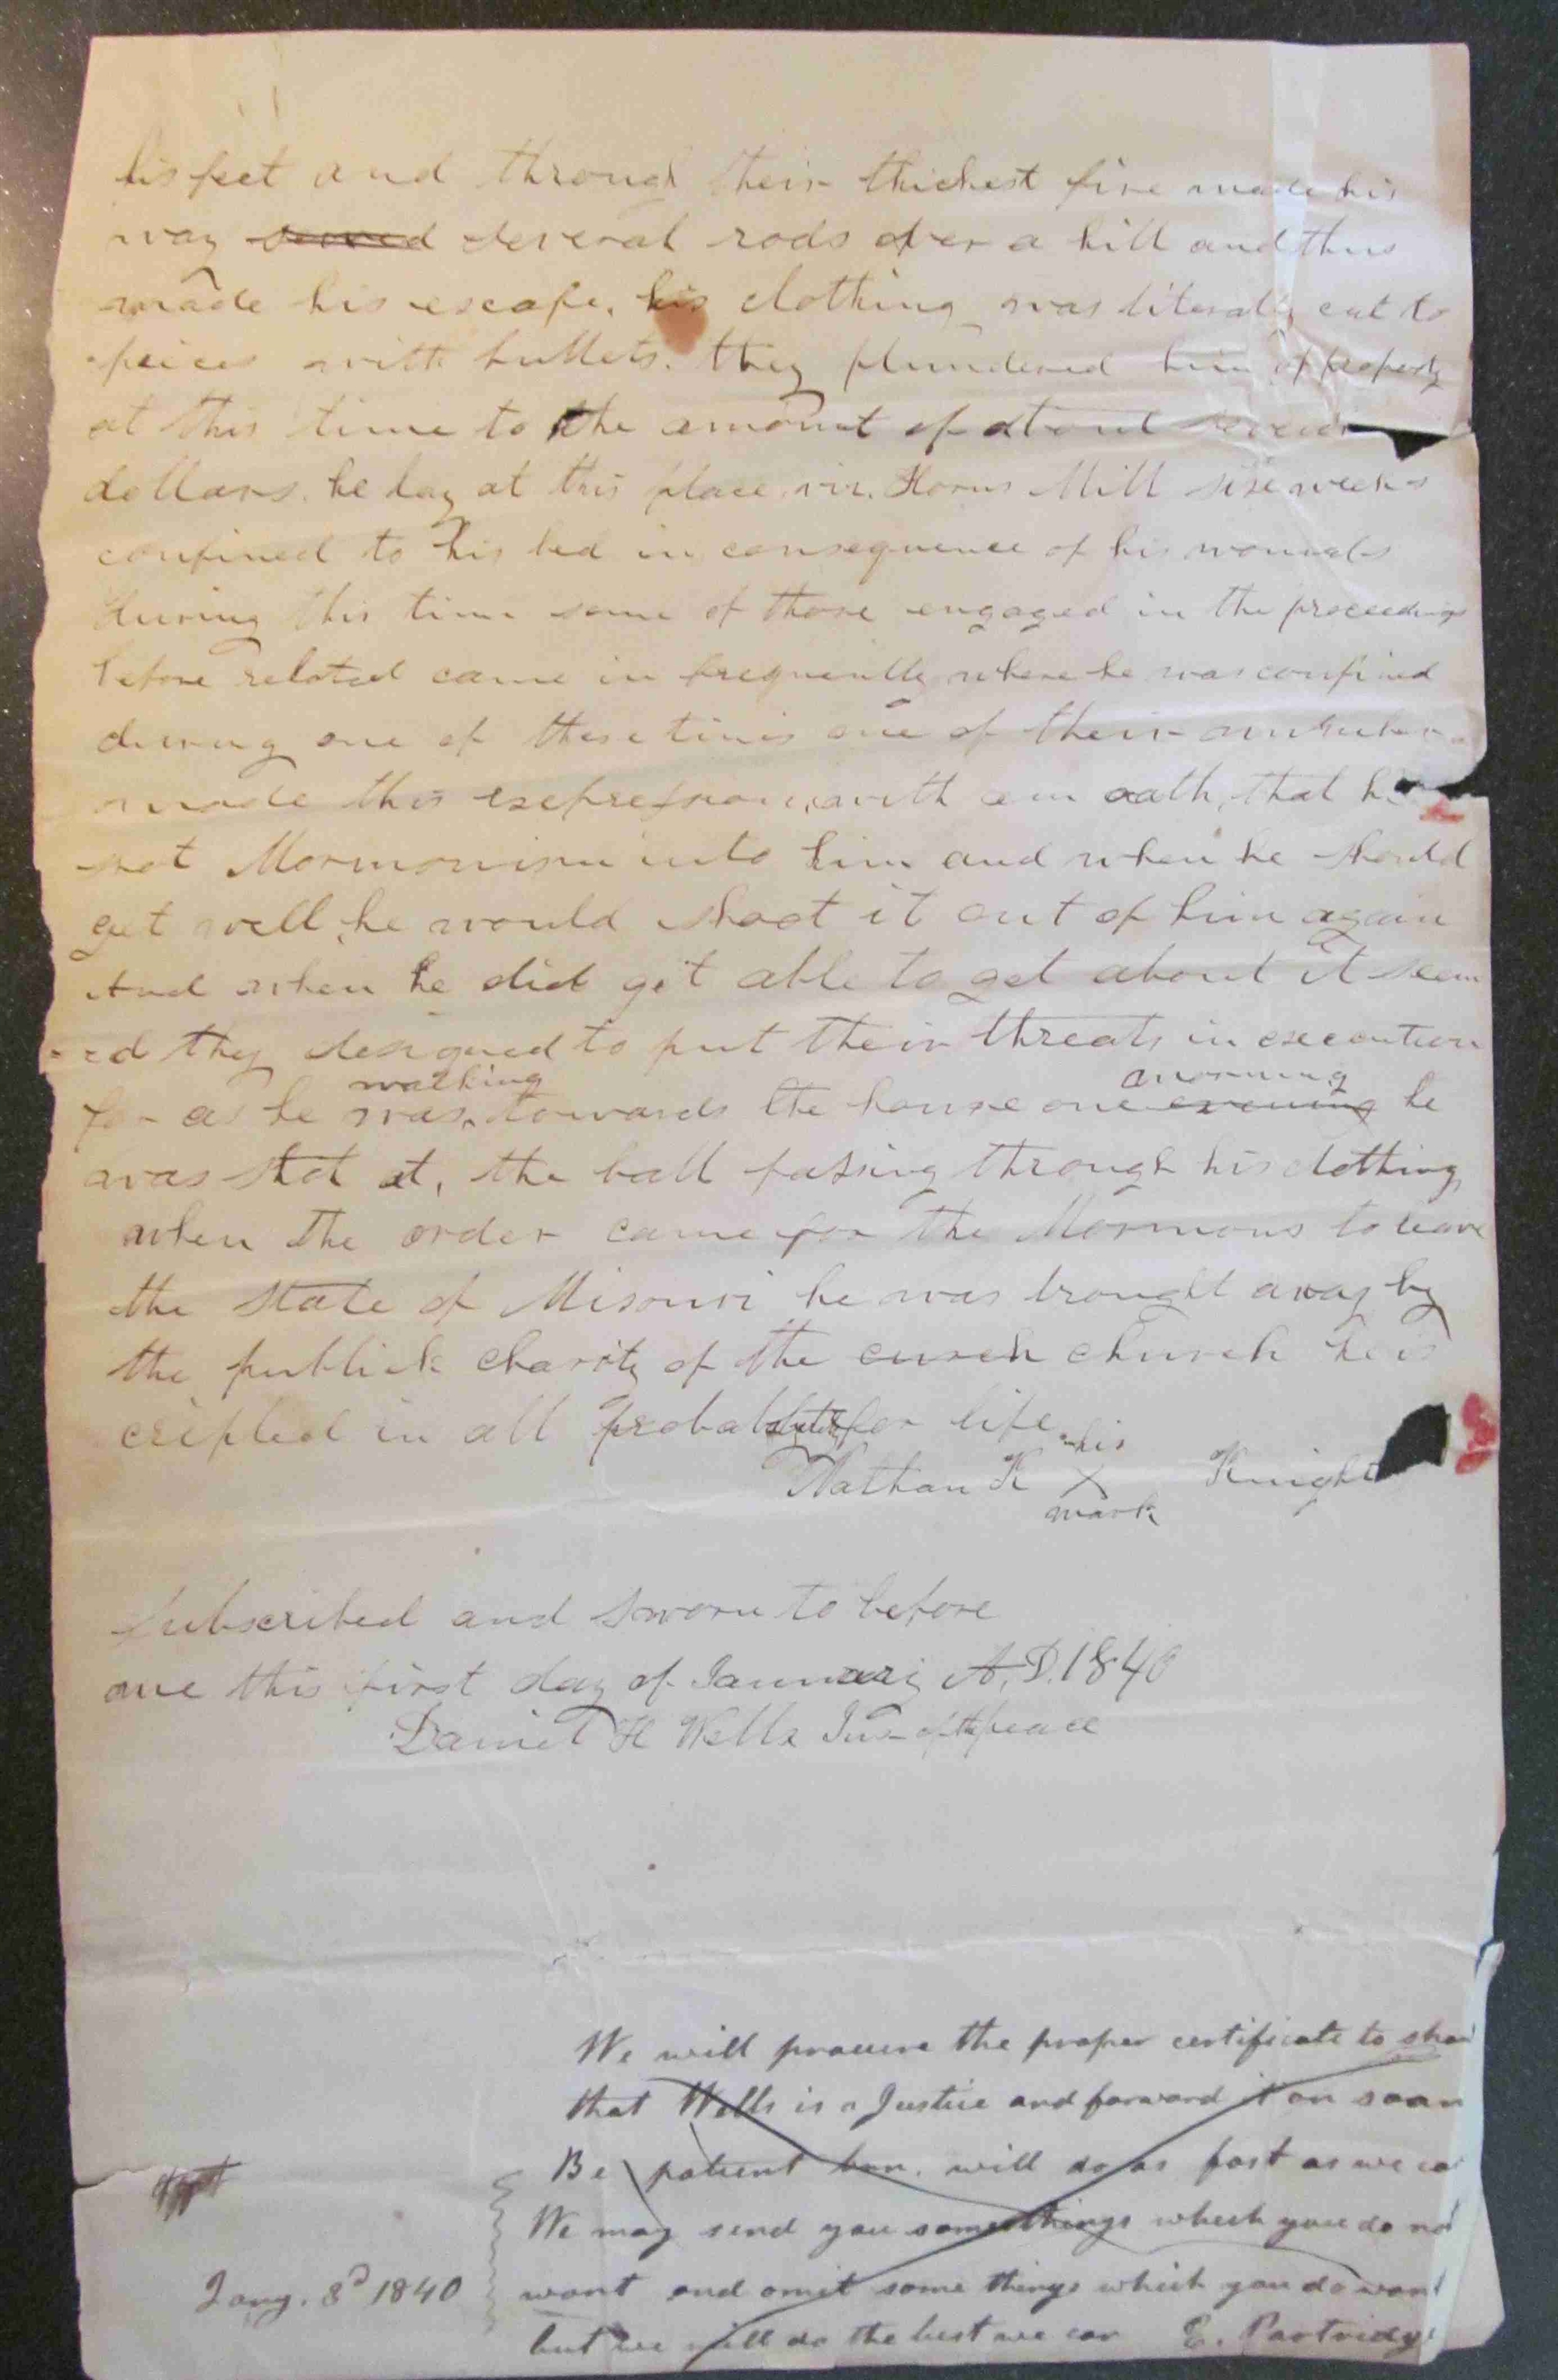 his feet and through their thickest fire made his
way several rods over a hill and thus
made his escape. his clothing was literally cut to
peices with bullets. they plundered him of property
at this time to the amount of about
dollars. he lay at this place viz. Horns Mill six weeks
confined to his bed in consequence of his wounds
During this time some of those engaged in the proceedings
before related came in frequently where he was confined
during one of these times one of their
made this expression, with an oath, that he
shot Mormonism into him and when he should
get well, he would shoot it out of him again
And when he did git able to get about it seem
-ed they designed to put their threats in execution
for as he was walking towards the house one evening morning he
was shot at, the ball passing through his clothing,
when the order came for the Mormons to leave
the State of Misouri he was brought away by
the publick charity of the curch church he is
cripled in all probability for life.
Nathan K his X mark Knight
Subscribed and Sworn to before
me this first day of January A.D. 1840
Daniel H Wells Jus- of the peace
We will procure the proper certificate to show
that Wells is a Justice and forward it on soon
Be patient bro. will do as fast as we can
We may send you some things which you do not
Jany. 8d 1840 want and omit some things which you do want
but we will do the best we can E. Partridge